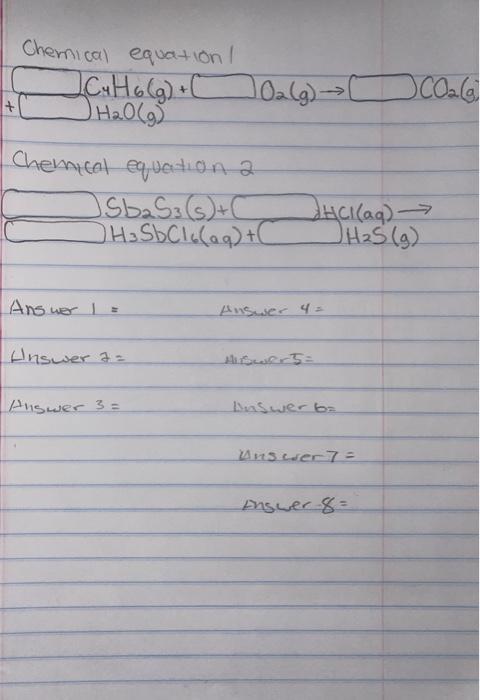 Chemical equation 1
C4H6(g) + O2(g) → CO2(g)
+ H2O(g)
Chemical equation 2
Sb2S3(s) + HCl(aq) →
H3SbCl6(aq) + H2S(g)
Answer 1 =
Answer 4 =
Answer 2 =
Answer 5 =
Answer 3 =
Answer 6 =
Answer 7 =
Answer 8 =